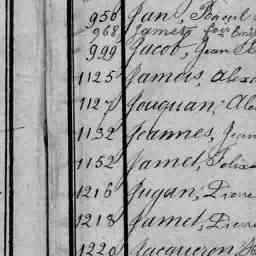 956 Jan,
968 Jamet,
999 Jacob, Jean
1125 Jamois, Alex
1127 Jouquan, Ale
1132 Joannes, Jean
1152 Jamet, Felix
1216 Jugan, Pierre
1218 Jamet, Pierre
1220 Jacqueron,